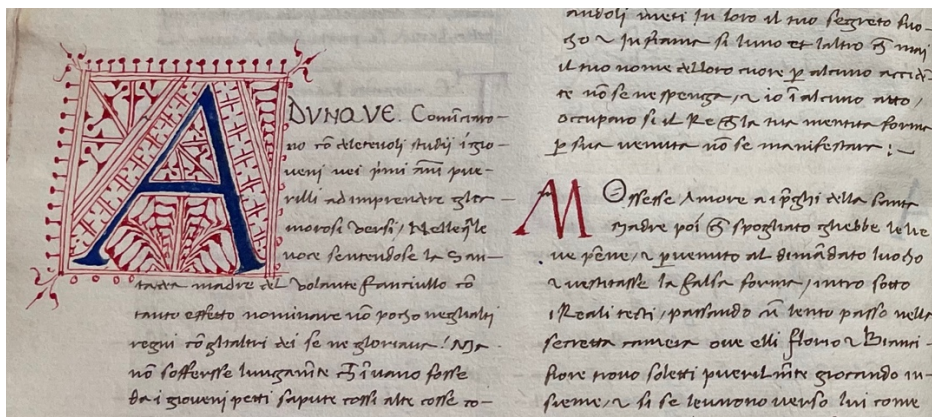 ADVNQVE. Cominciaro-
no cõ deletevoli studii i gio-
veni nei p̃mi ãni pue-
rilli ad imprendere gli a-
morosi versi / Nelle q̃le
voce sentendose la San-
ta dea madre del volante fanciullo cõ
tanto effetto nominare nõ pocho negli alti
regni cõ gli altri dei se ne gloriava / Ma
nõ soffersse lungamẽte ch̃ i vano fosse
da i gioveni petti sapute cossi alte cosse co-
andoli meti in loro il tuo segreto fuo-
cho ⁊ Infiama si luno et laltro ch̃ mai
il tuo nome de loro cuore p̱ alcuno accidẽ
te nõ se ne spenga / ⁊ io ĩ alcuno atto /
occuparo si il Re ch̃ la tua mentita forma
p̱ sua venuta nõ se manifestara :-
MOssesse Amore a i p̃ghi della santa
madre poi ch̃ spogliato ghebbe le lie
ve pẽne / ⁊ p̱venuto al dimãdato luocho
⁊ vestitasse la falsa forma / intro sotto
i Reali tecti / passando cũ lento passo nella
secretta camera ove elli florio ⁊ Bianci-
fiore trovo soletti puerilmẽte giocando in-
sieme / ⁊ si se levorono verso lui come